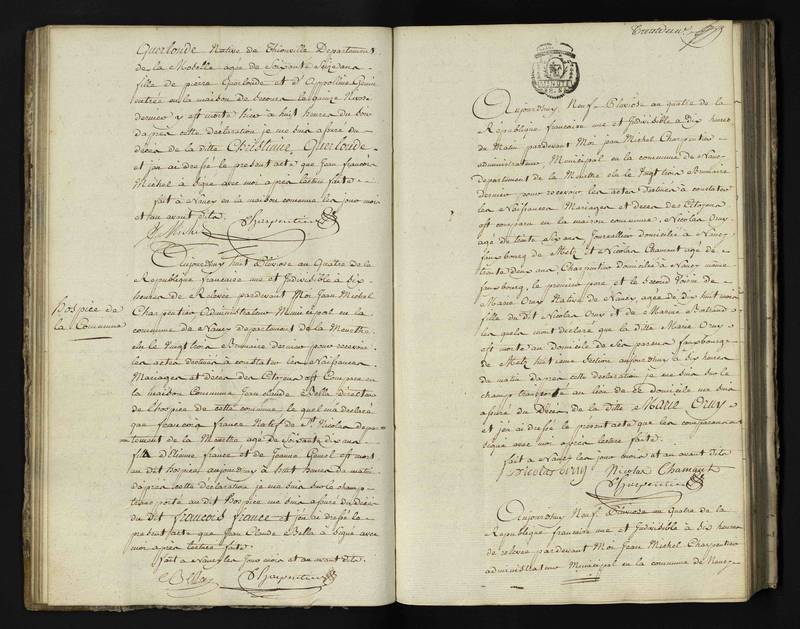 Querlonde Native de Thionville Departement
de la Moselle agée de Soixante Seize ans
fille de pierre Querlonde et d'Appolline
entrée en la maison de Secours le quinze Nivose
dernier y est morte hier à huit heures du soir
d'après cette déclaration je me suis assuré du
décès de la ditte Christiane Querlonde
et j'en ai dressé le present acte que Jean françois
Michel à Signé avec moi après lecture faite
fait à Nancy en la maison commune les jour mois
et an avant dits.
Michel Charpentier
Aujourdhuy huit Pluviose an Quatre de la
Republique francoise une et Indivisible à Six
heures de Relevée pardevant Moi Jean Michel
Charpentier Administrateur Municipal en la
commune de Nancy departement de la Meurthe
élu le Vingt trois Brumaire dernier pour recevoir
les actes destinés à constater les Naissances
Mariages et décès des Citoyens est Comparu en
la maison Commune Jean claude Bella Directeur
de l'hospice de cette commune lequel m'a déclaré
que francois france Natif de St. Nicolas depar-
tement de la Meurthe agé de Soixante dix ans
fils d'Etienne france et de Jeanne est mort
au dit hospice aujourdhuy à huit heures du matin
d'après cette déclaration je me suis sur le champ
transporté au dit hospice me suis assuré du décès
du dit françois france et j'en ai dressé le
present acte que Jean Claude Bella à Signé avec
moi après lecture faite.
fait à Nancy les jour mois et an avant dits.
Bella Charpentier
hospice de
la Commune
Aujourdhuy Neuf Pluviose an quatre de la
République francaise une et Indivisible à dix heures
du Matin pardevant Moi jean Michel Charpentier
administrateur Municipal en la commune de Nancy
departement de la Meurthe élu le Vingt trois Brumaire
dernier pour recevoir les actes destinés à constater
les Naissances Mariages et décès des Citoyens
est comparu en la maison commune Nicolas Oruy
agé de trente Six ans Journallier domicilié à Nancy
fauxbourg de Metz et Nicolas Chamant agé de
trente deux ans Charpentier domicilié à Nancy même
fauxbourg, le premier pere et le Second Voisin de
Marie Oruy Native de Nancy, agée de dix huit mois
fille du dit Nicolas Oruy et de Marie Bertrand
les quels m'ont declaré que la ditte Marie Oruy
est morte au domicile de ses parens fauxbourg
de Metz huitieme Section aujourdhuy à Six heures
du matin d'après cette déclaration je me suis sur le
champ transporté au lieu de ce domicile me suis
assuré du Décès de la ditte Marie Oruy
et j'en ai dressé le present acte que les comparans ont
Signé avec moi après lecture faite.
fait à Nancy les jour mois et an avant dits
Nicolas oruy Nicolas Chamant
Charpentier
Aujourdhuy Neuf Pluviose an Quatre de la
Republique francaise une et Indivisible à Six heures
de relevée pardevant Moi Jean Michel Charpentier
administrateur Municipal en la commune de Nancy